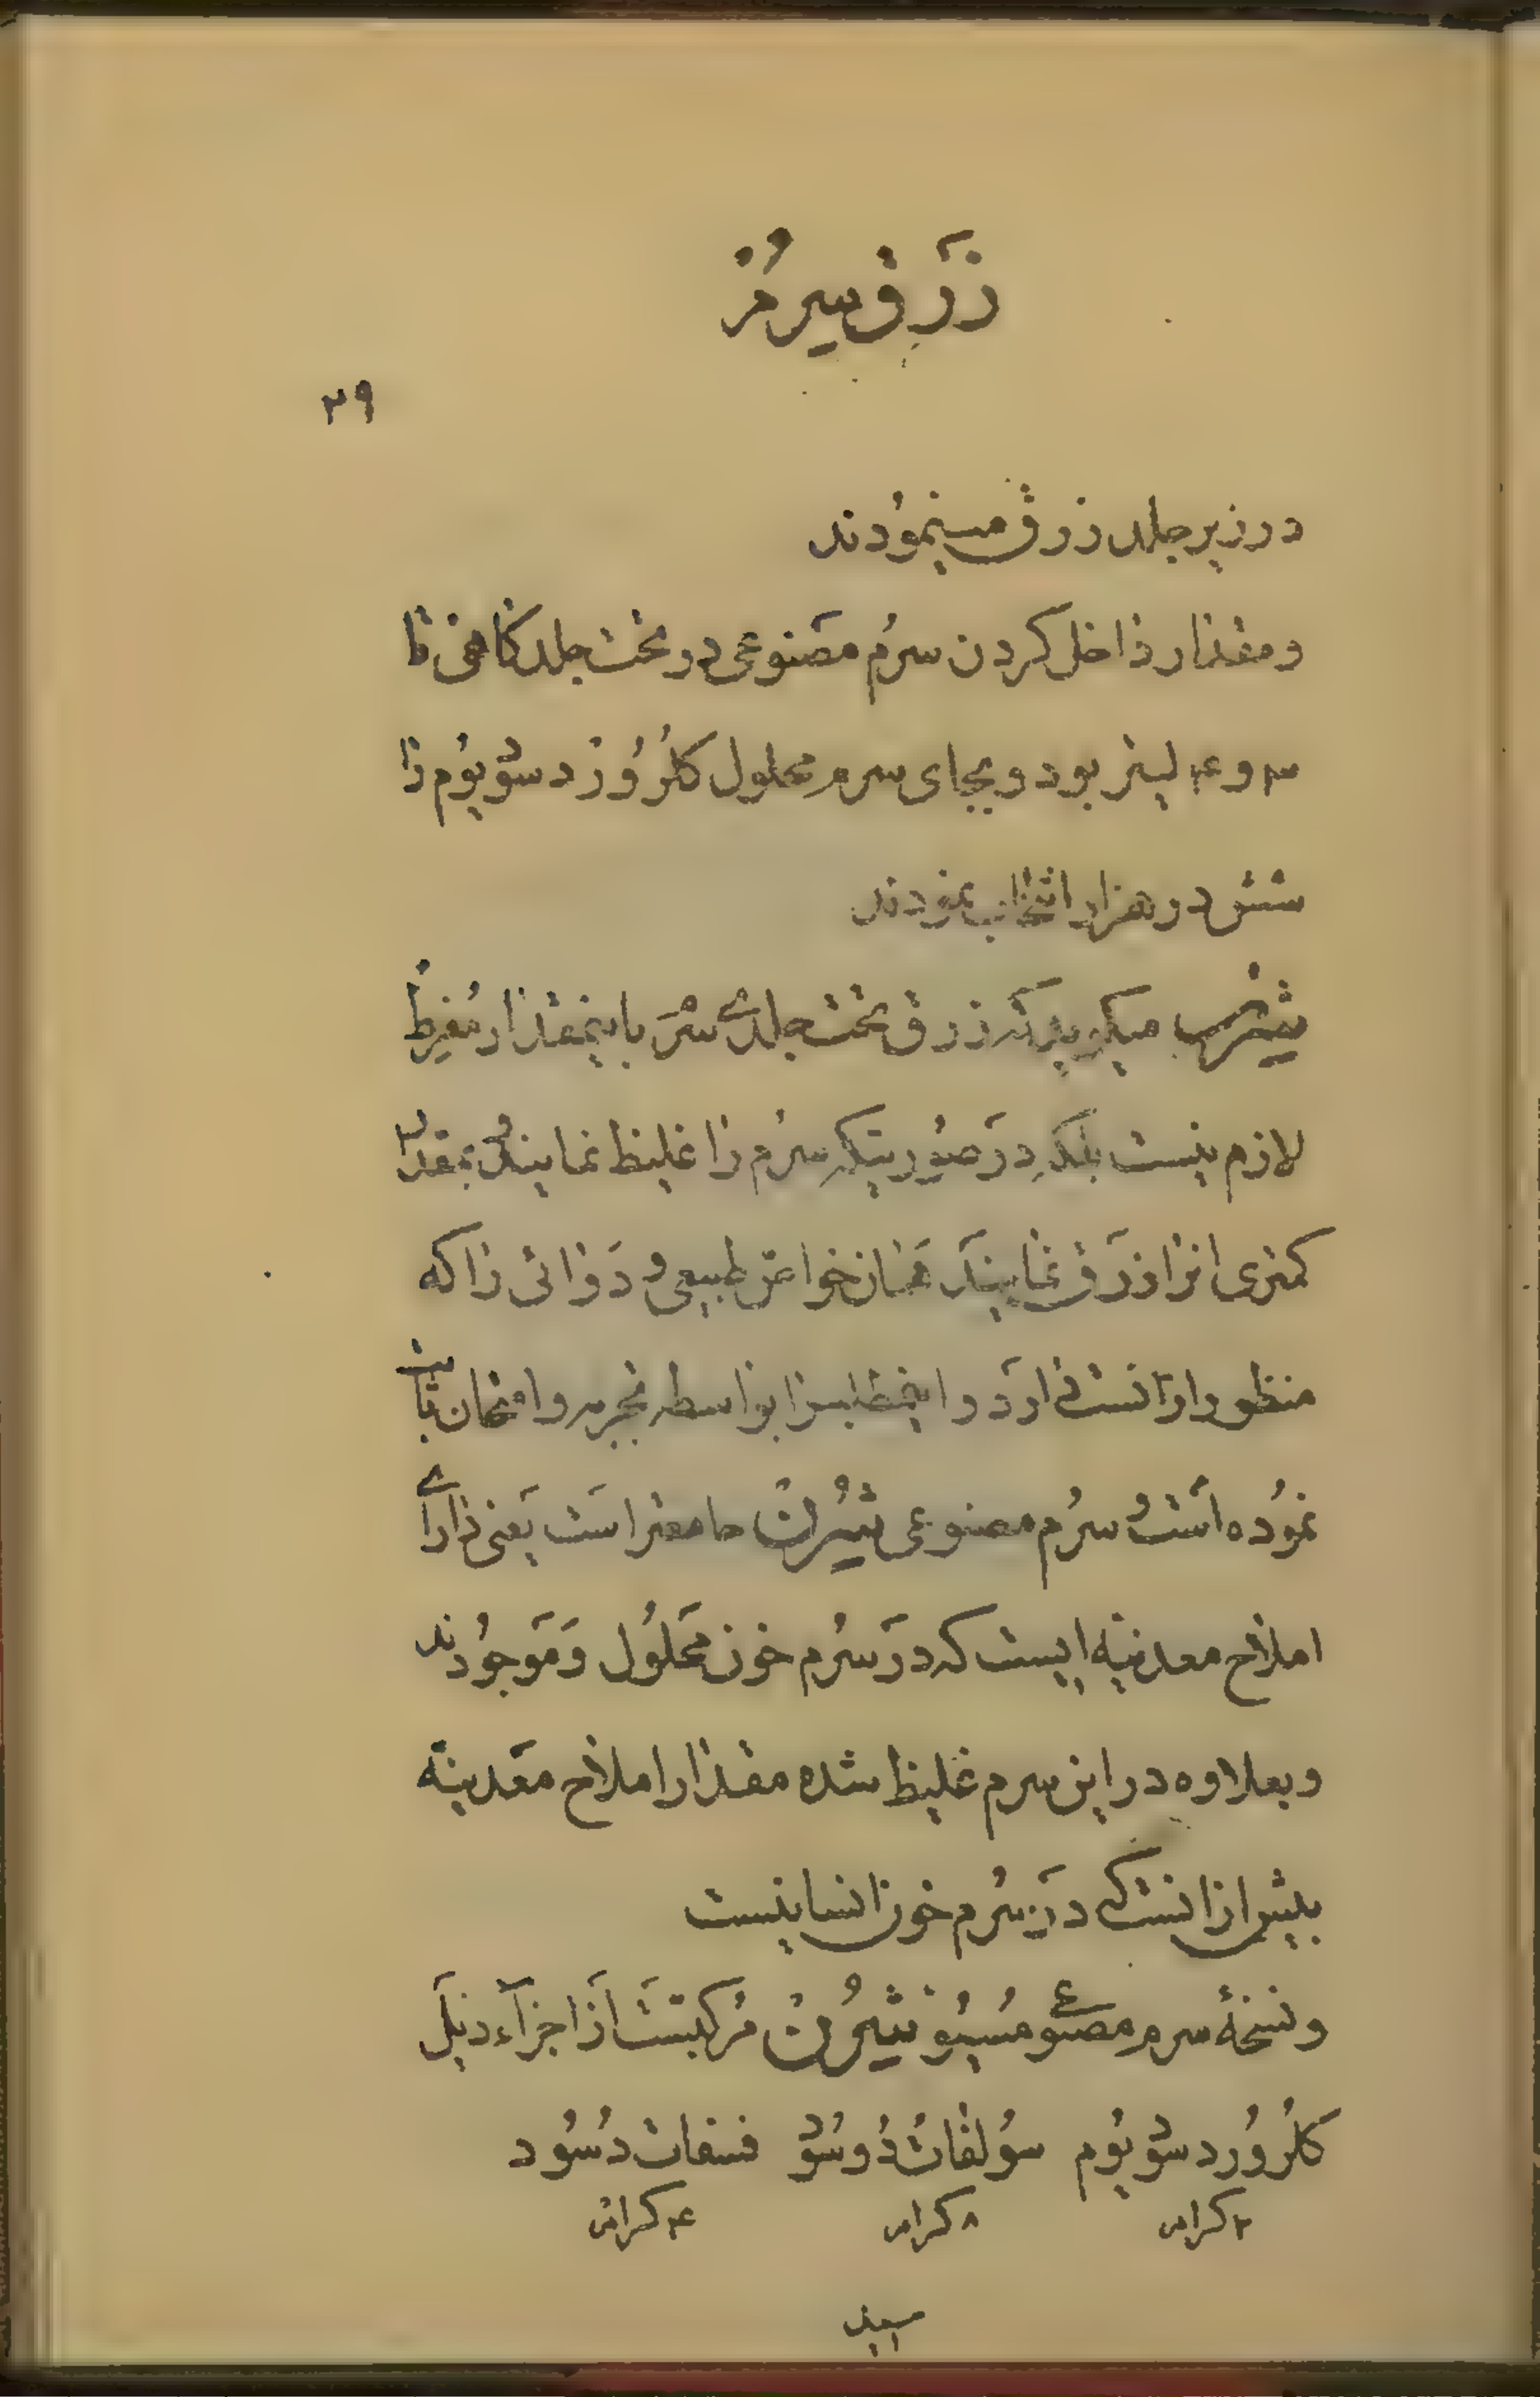 زرق سیرم
۲۹
در زیر جلد زرق مینمودند
و مقدار داخل کردن سرم مصنوعی در تحت جلد کافی تا
۳ و ۴ لیتر بود و بجای سرم محلول کلرور د سدیوم را
شش در هزار انتخاب نمودند
میگوید که زرق تحت جلدی سرم باینمقدار مفرط
لازم نیست بلکه در صورتیکه سرم را غلیظ نمایند و بمقدار
کمتری انرا زرق نمایند همان خواص طبیعی و دوائی را که
منظور از انست دارد و اینمطلب را بواسطه تجربه و امتحان ثابت
نموده است و سرم مصنوعی شیرن جامعتر است یعنی دارای
املاح معدنیه ایست که در سرم خون محلول و موجودند
و بعلاوه در این سرم غلیظ شده مقدار املاح معدنیه
بیش از انست که در سرم خون انسانیست
و نسخهٔ سرم مصنوعی مسیو شیرن مرکبست از اجزاء ذیل
کلرور د سدیوم سولفات دو سود فسفات د سود
۲ کرام ۸ کرام ۴ کرام